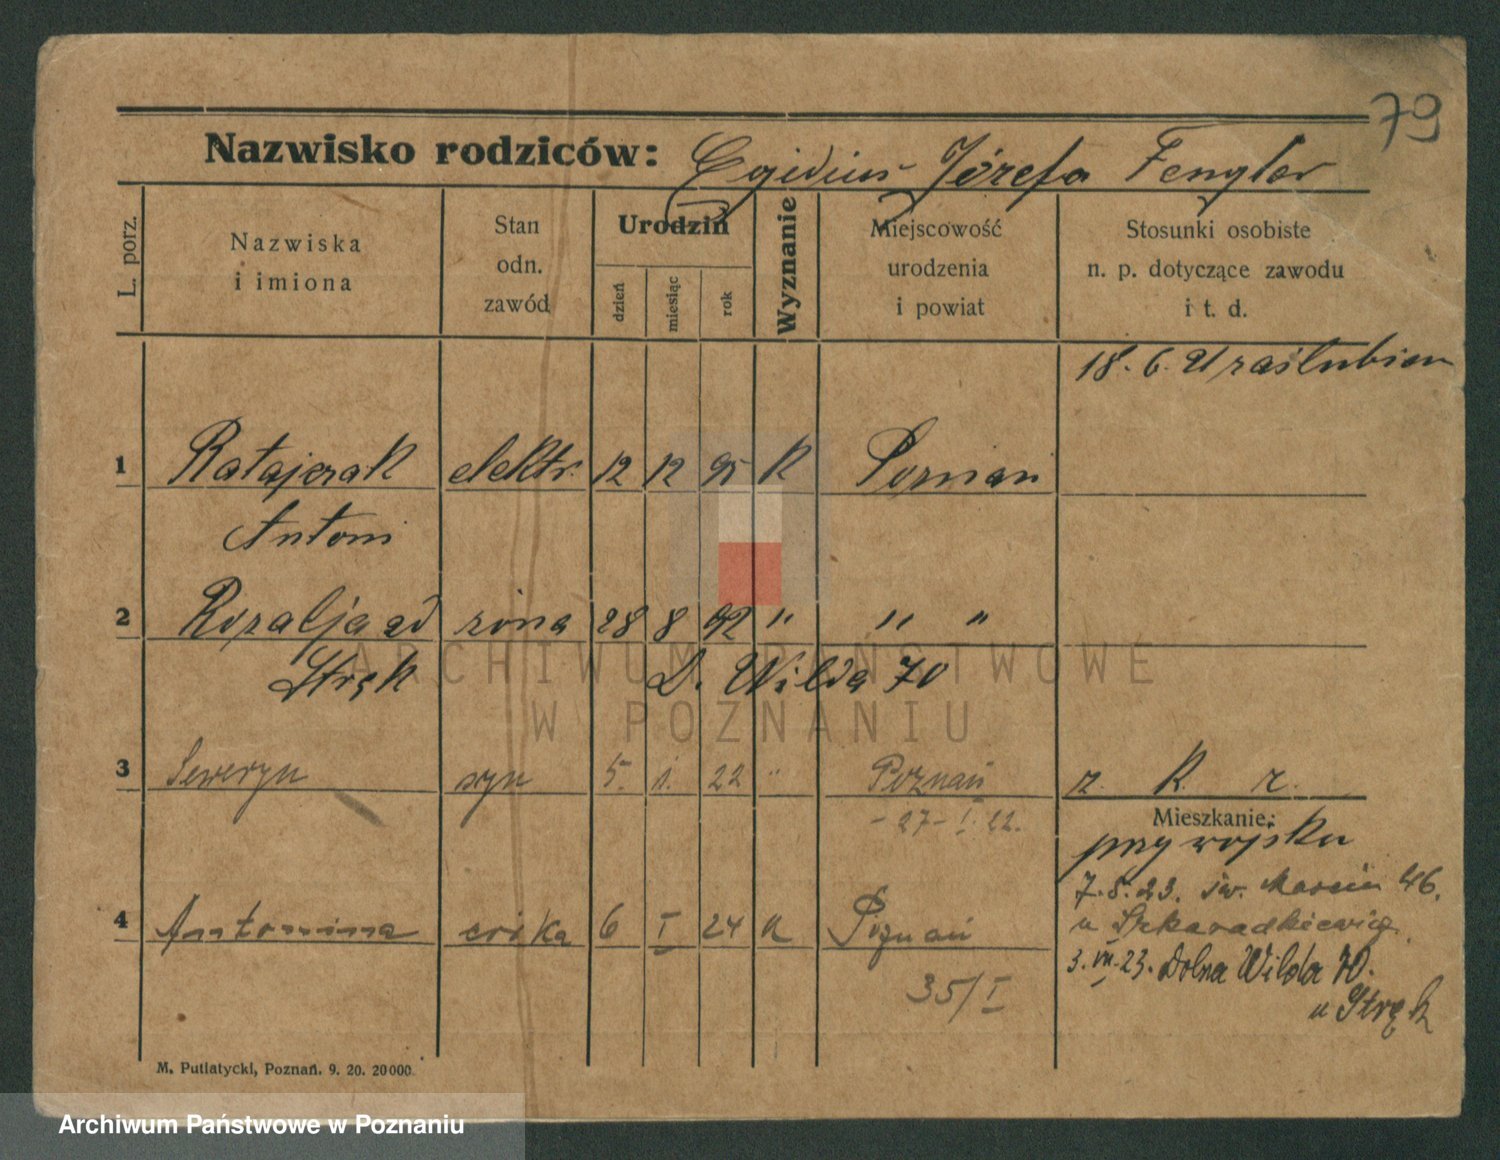 79
Nazwisko rodziców: Egidius Józefa Fengler
L. porz.
Nazwiska i imiona
Stan odn. zawód
Urodzin
dzień
miesiąc
rok
Wyznanie
Miejscowość urodzenia i powiat
Stosunki osobiste n. p. dotyczące zawodu i t. d.
18. 6. 21 zaślubien
1 Ratajczak elektr. 12 12 95 K Poznań
Antoni
2 Rozalja zd żona 28 8 92 " " "
Stręk D. Wilda 70
3 Seweryn syn 5. 1. 22 " Poznań z. K. r.
- 27 - I. 22.
Mieszkanie:
przy wojsku
7. 5. 23. św. Marcin 46.
4 Antonina córka 6 I 24 K Poznań
u Szkaradkiewicz
3. VII. 23. Dolna Wilda 70.
35/I
u Stręk
M. Putiatycki, Poznań. 9. 20. 20000.
ARCHIWUM PAŃSTWOWE
W POZNANIU
Archiwum Państwowe w Poznaniu